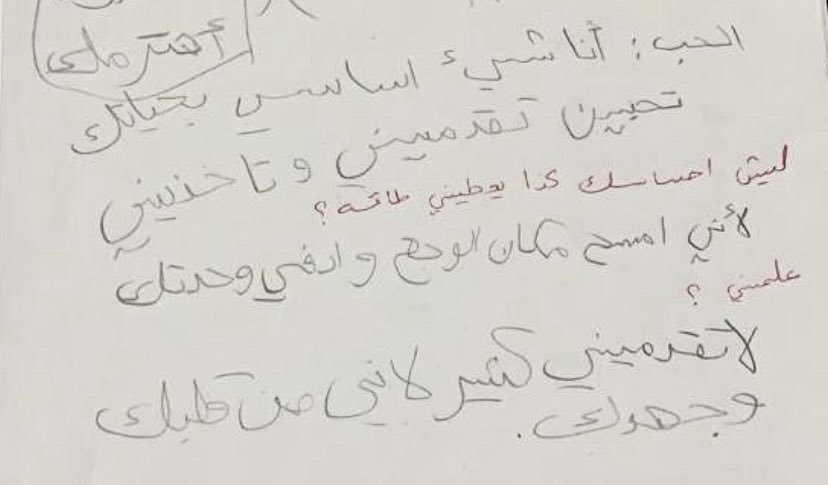 أهتر ملك
الحب : أنا شيء اساسي بحياتك
تحبين تقدميني وتاخذيني
ليش احساسك كذا يعطيني طاقة ؟
لأني امسح مكان الوجع وادفي وحدتك
علميني ؟
لا تقدميني كثير لاني من قلبك
وجهدك .